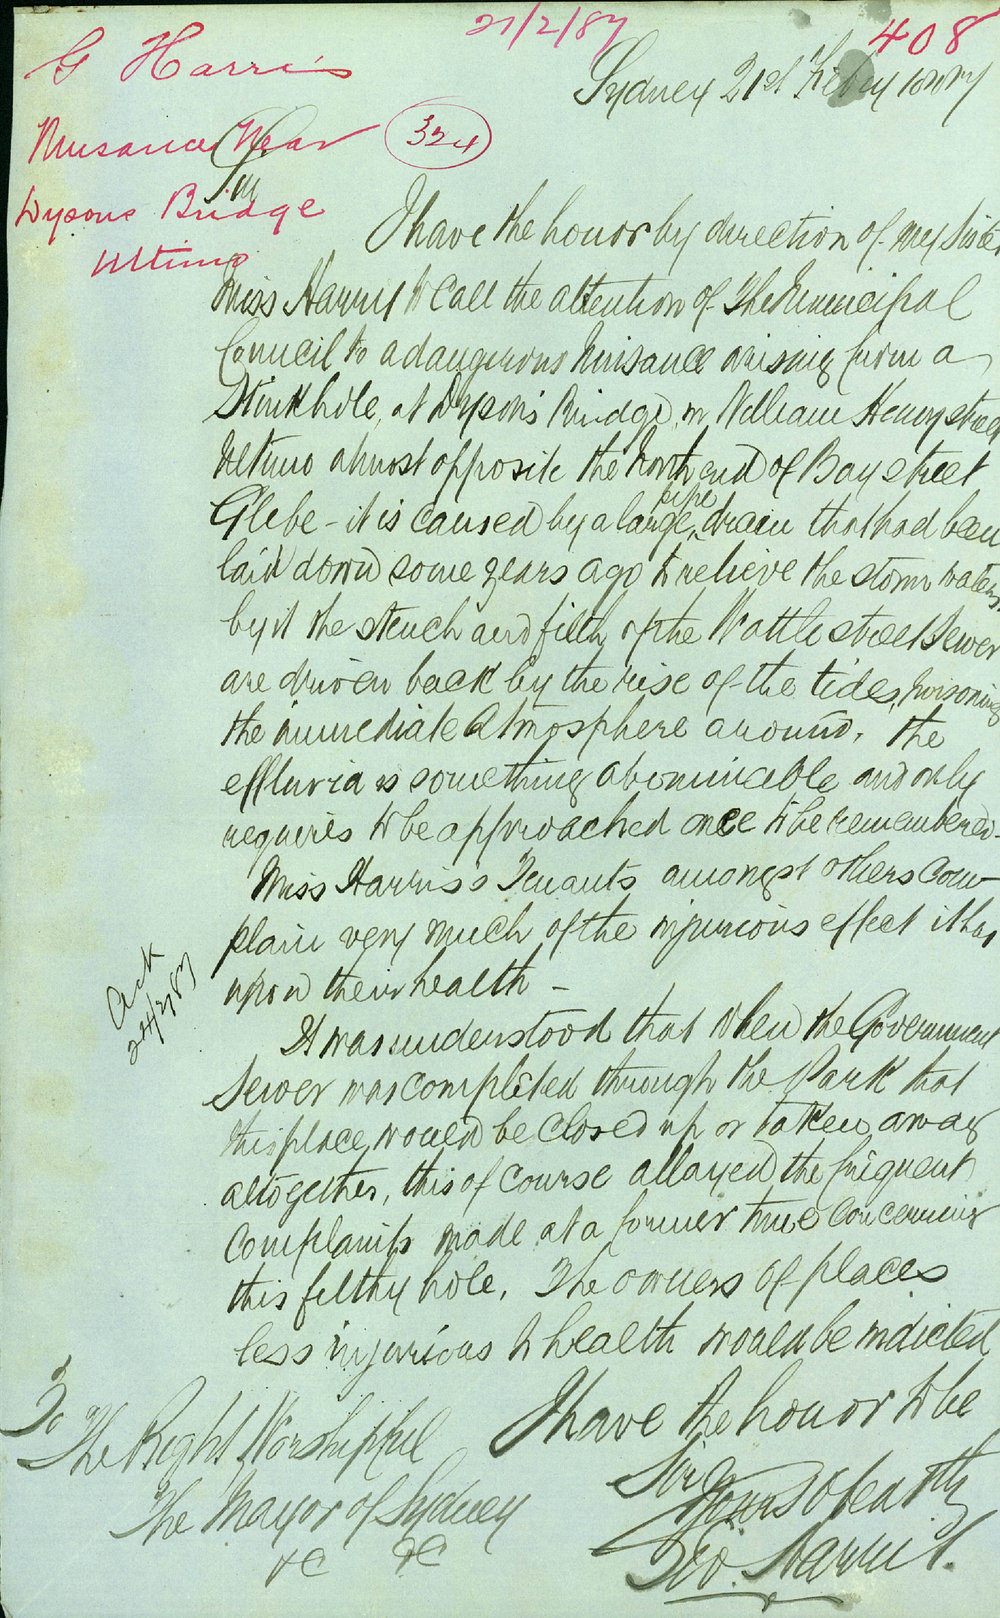 21/2/87
408
G Harris
Sydney 21st Febry 1887
Nuisance Near
324
Dysons Bridge
Ultimo
Sir
I have the honor by direction of my Sister
Miss Harris to call the attention of The Municipal
Council to a dangerous Nuisance arising from a
Stinkhole, at Dyson's Bridge in William Henry street
Ultimo almost opposite the North end of Bay street
Glebe - it is caused by a large pipe drain that had been
laid down some years ago to relieve the storm waters,
by it the stench and filth of the Wattle street Sewer
are driven back by the rise of the tides, poisoning
the immediate atmosphere around. The
effluvia is something abominable and only
requires to be approached once to be remembered -
Miss Harris's Tenants amongst others com-
plain very much of the injurious effect it has
upon their health -
Ack
24/2/87
It was understood that when the Government
Sewer was completed through the Park that
this place would be closed up or taken away
altogether, this of course allayed the frequent
complaints made at a former time concerning
this filthy hole. The owners of places
less injurious to health would be indicted
I have the honor to be
Sir
Yours obeatly
Geo. Harris.
To
The Right Worshipful
The Mayor of Sydney
&c &c